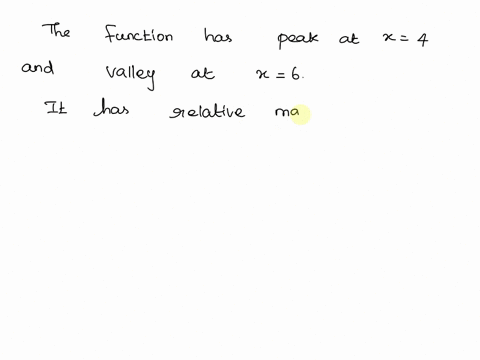 The function has peak at x = 4
and valley at x = 6.
It has relative ma